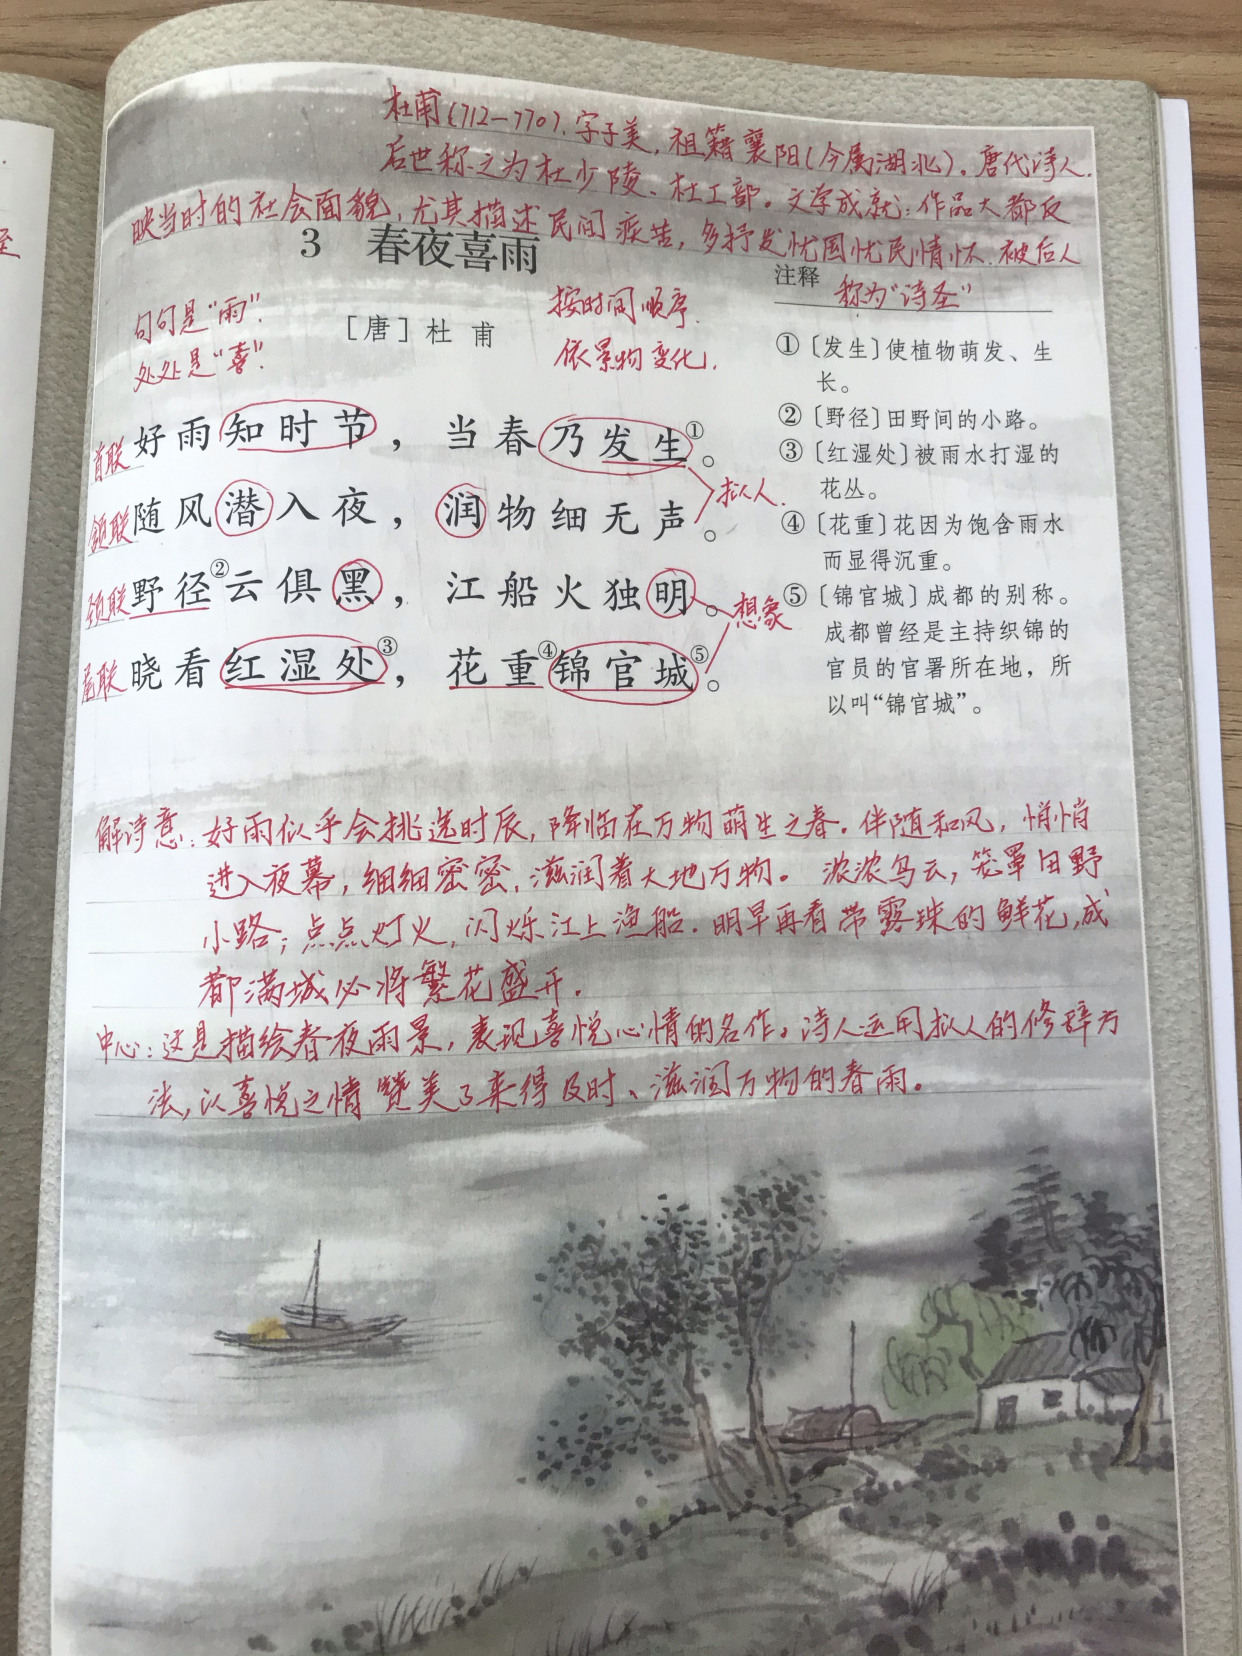 杜甫(712—770).字子美,祖籍襄阳(今属湖北)。唐代诗人.
后世称之为杜少陵、杜工部。文学成就:作品大都反
映当时的社会面貌,尤其描述民间疾苦,多抒发忧国忧民情怀.被后人
称为"诗圣"
3 春夜喜雨
[唐] 杜 甫
句句是"雨".
处处是"喜".
按时间顺序.
依景物变化.
首联 好雨知时节，当春乃发生①。
颔联 随风潜入夜，润物细无声。
拟人.
颈联 野径②云俱黑，江船火独明。
想象
尾联 晓看红湿处③，花重④锦官城⑤。
注释
①〔发生〕使植物萌发、生
长。
②〔野径〕田野间的小路。
③〔红湿处〕被雨水打湿的
花丛。
④〔花重〕花因为饱含雨水
而显得沉重。
⑤〔锦官城〕成都的别称。
成都曾经是主持织锦的
官员的官署所在地，所
以叫“锦官城”。
解诗意:好雨似乎会挑选时辰,降临在万物萌生之春.伴随和风,悄悄
进入夜幕,细细密密,滋润着大地万物。浓浓乌云,笼罩田野
小路;点点灯火,闪烁江上渔船.明早再看带露珠的鲜花,成
都满城必将繁花盛开.
中心:这是描绘春夜雨景,表现喜悦心情的名作。诗人运用拟人的修辞方
法,以喜悦之情赞美了来得及时、滋润万物的春雨。